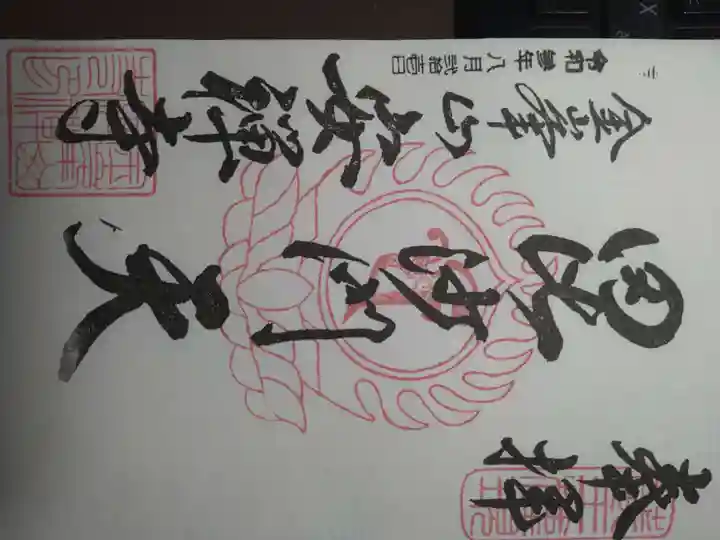 奉拝
毘沙門天
金峯山安禅寺
令和参年八月弐拾壱日